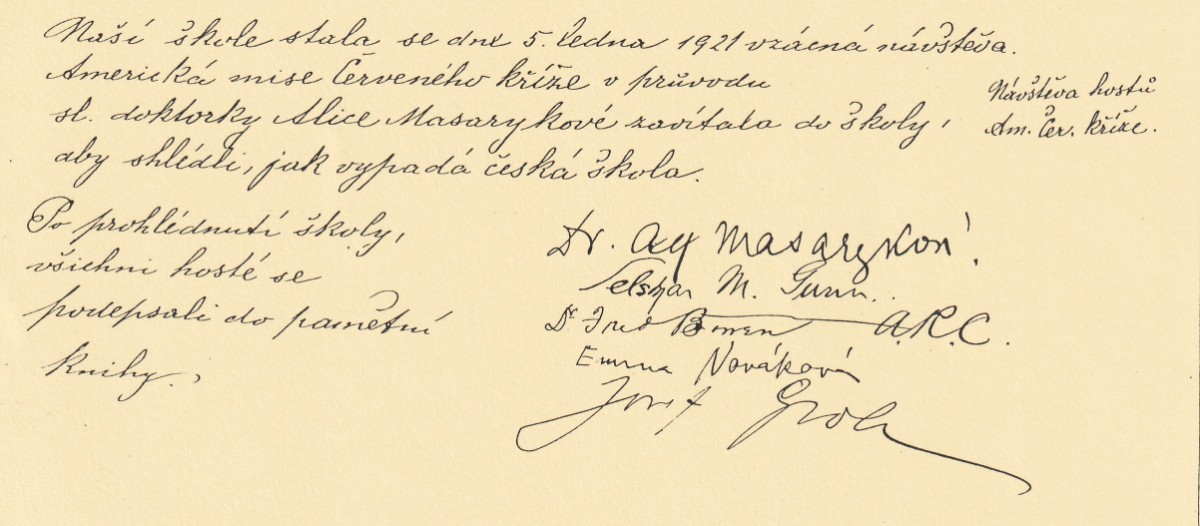 Naší škole stala se dne 5. ledna 1921 vzácná návštěva.
Americká mise Červeného kříže v průvodu
sl. doktorky Alice Masarykové zavítala do školy,
aby shlédli, jak vypadá česká škola.
Návštěva hostů
Am. Čer. kříže.
Po prohlédnutí školy,
všichni hosté se
podepsali do pamětní
knihy.
Dr. Masaryková.
M. Gunn.
Dr Fred A.R.C.
Emma Nováková
Josef Groh